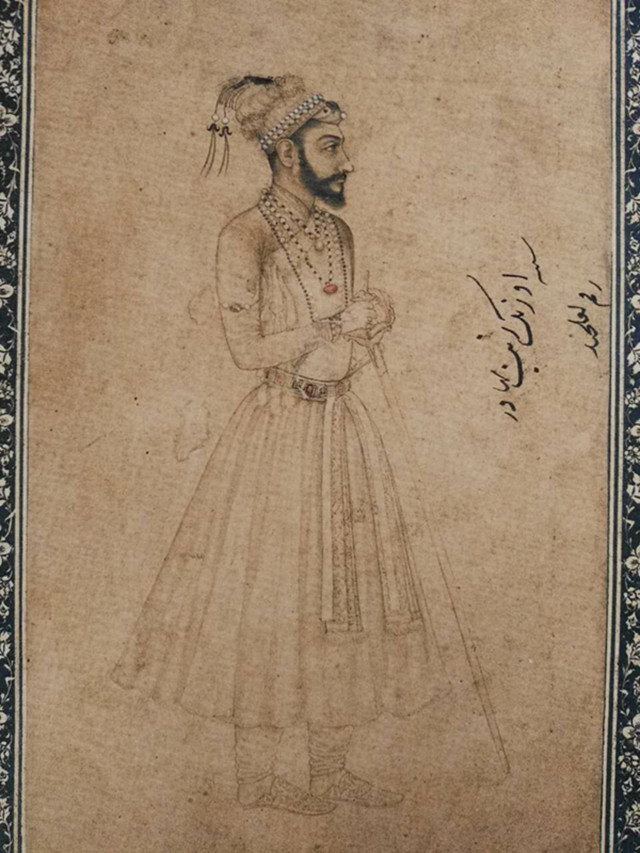 شبیه اورنک زیب بهادر
رقم لعلچند